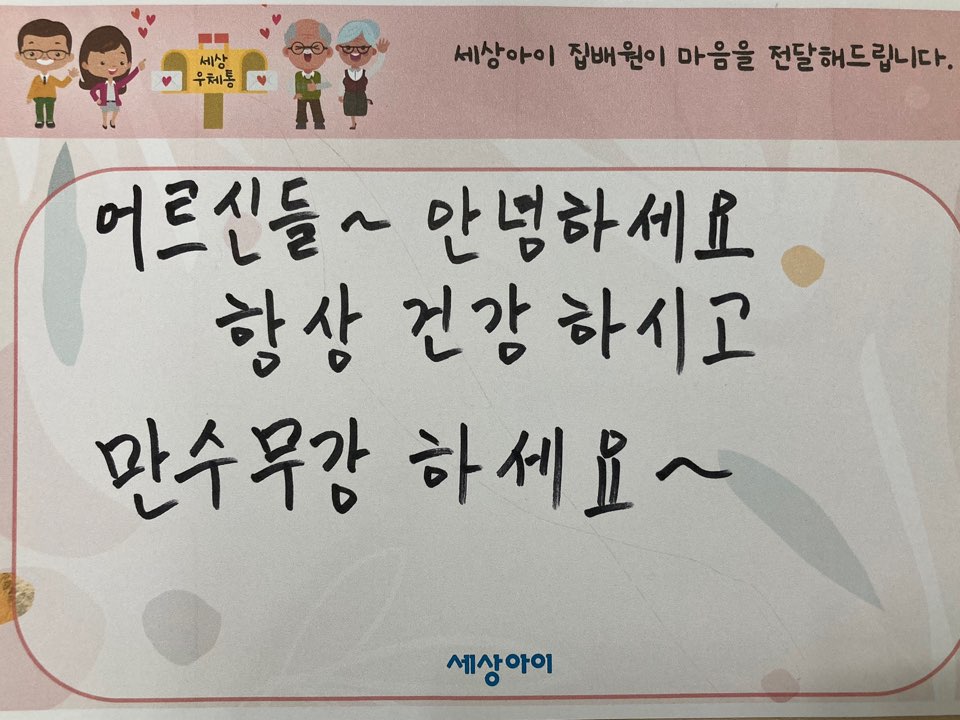 세상아이 집배원이 마음을 전달해드립니다.
세상
우체통
어르신들~ 안녕하세요
항상 건강 하시고
만수무강 하세요~
세상아이